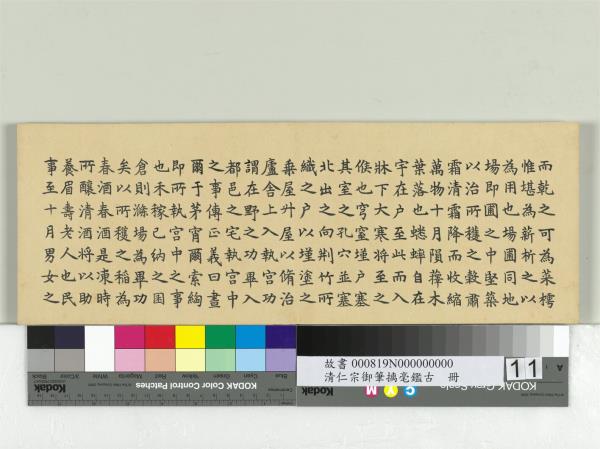 而乾之可為菜樗
惟堪為薪析之以
為用也場圃同地
場即圃之中堅築
以治所穫之穀肅
霜清霜降而收縮
萬物十月隕蘀木
葉落也蟋蟀自在
宇在户至此而入
牀下大寒將至之
候也穹窒塞
其室之孔穴並塞
北出之向荆竹所
織之户以墐塗之
乗屋升屋以脩治
廬舍上入執宫功
謂在野之功畢入
都邑之宅執宫中
之事傳正義曰晝
爾于茅宵爾索綯
即所執宫中之事
也禾稼已納之囷
倉則滌場為畢功
矣以所穫之稻為
春酒春酒是凍時
所釀清酒將以助
養眉壽老人也民
事至十月男女之
Blue Cyan Green Yellow Red Magenta White Black
Kodak KODAK Color Control Patches
故書 000819N000000000
清仁宗御筆摛毫鑑古 冊
11
A
C Y M
KODAK Gray Scale
Kodak